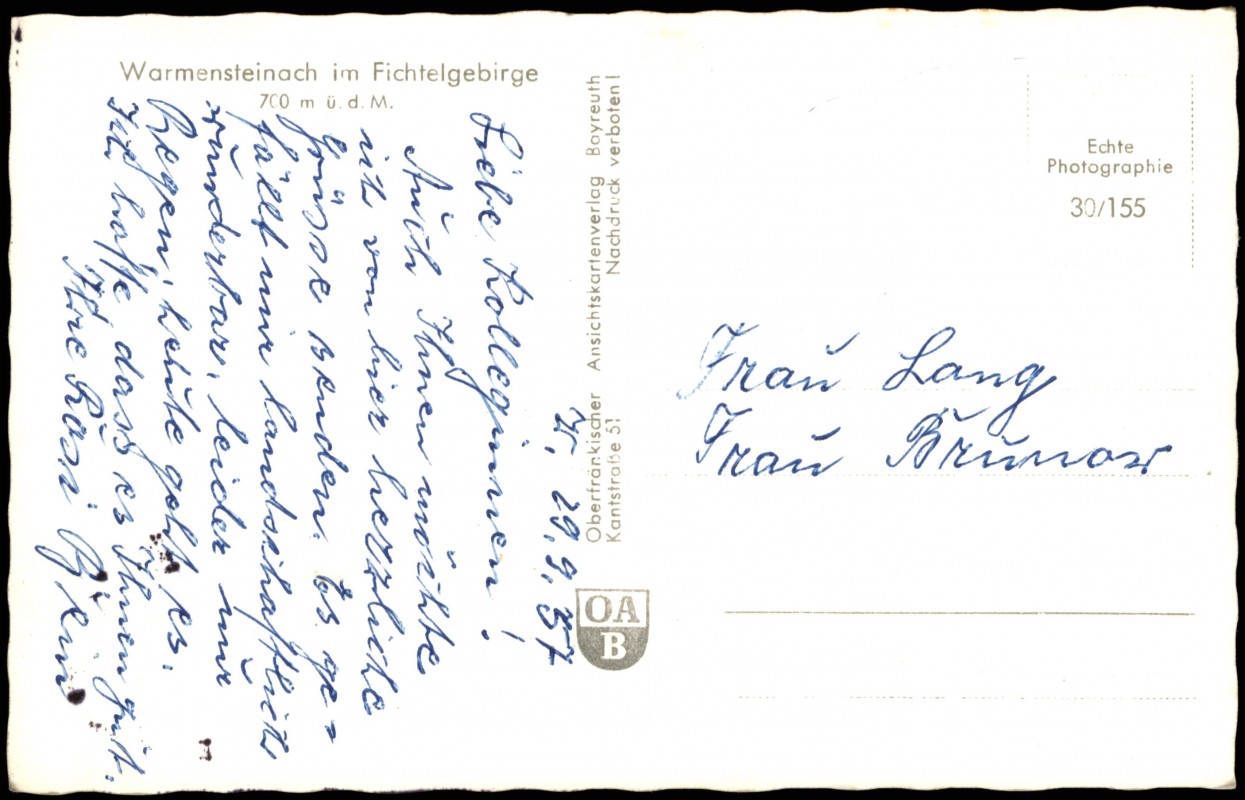 Warmensteinach im Fichtelgebirge
700 m ü. d. M.
W, 29.9.57
Liebe Kolleginnen!
Auch Ihnen möchte
ich von hier herzliche
Grüsse senden. Es ge=
fällt mir landschaftlich
wunderbar, leider nur
Regen, heute geht es.
Ich hoffe, dass es Ihnen gut.
Ihre Rosi
Oberfränkischer Ansichtskartenverlag Bayreuth
Kantstraße 51 Nachdruck verboten!
OA
B
Echte
Photographie
30/155
Frau Lang
Frau Brunow